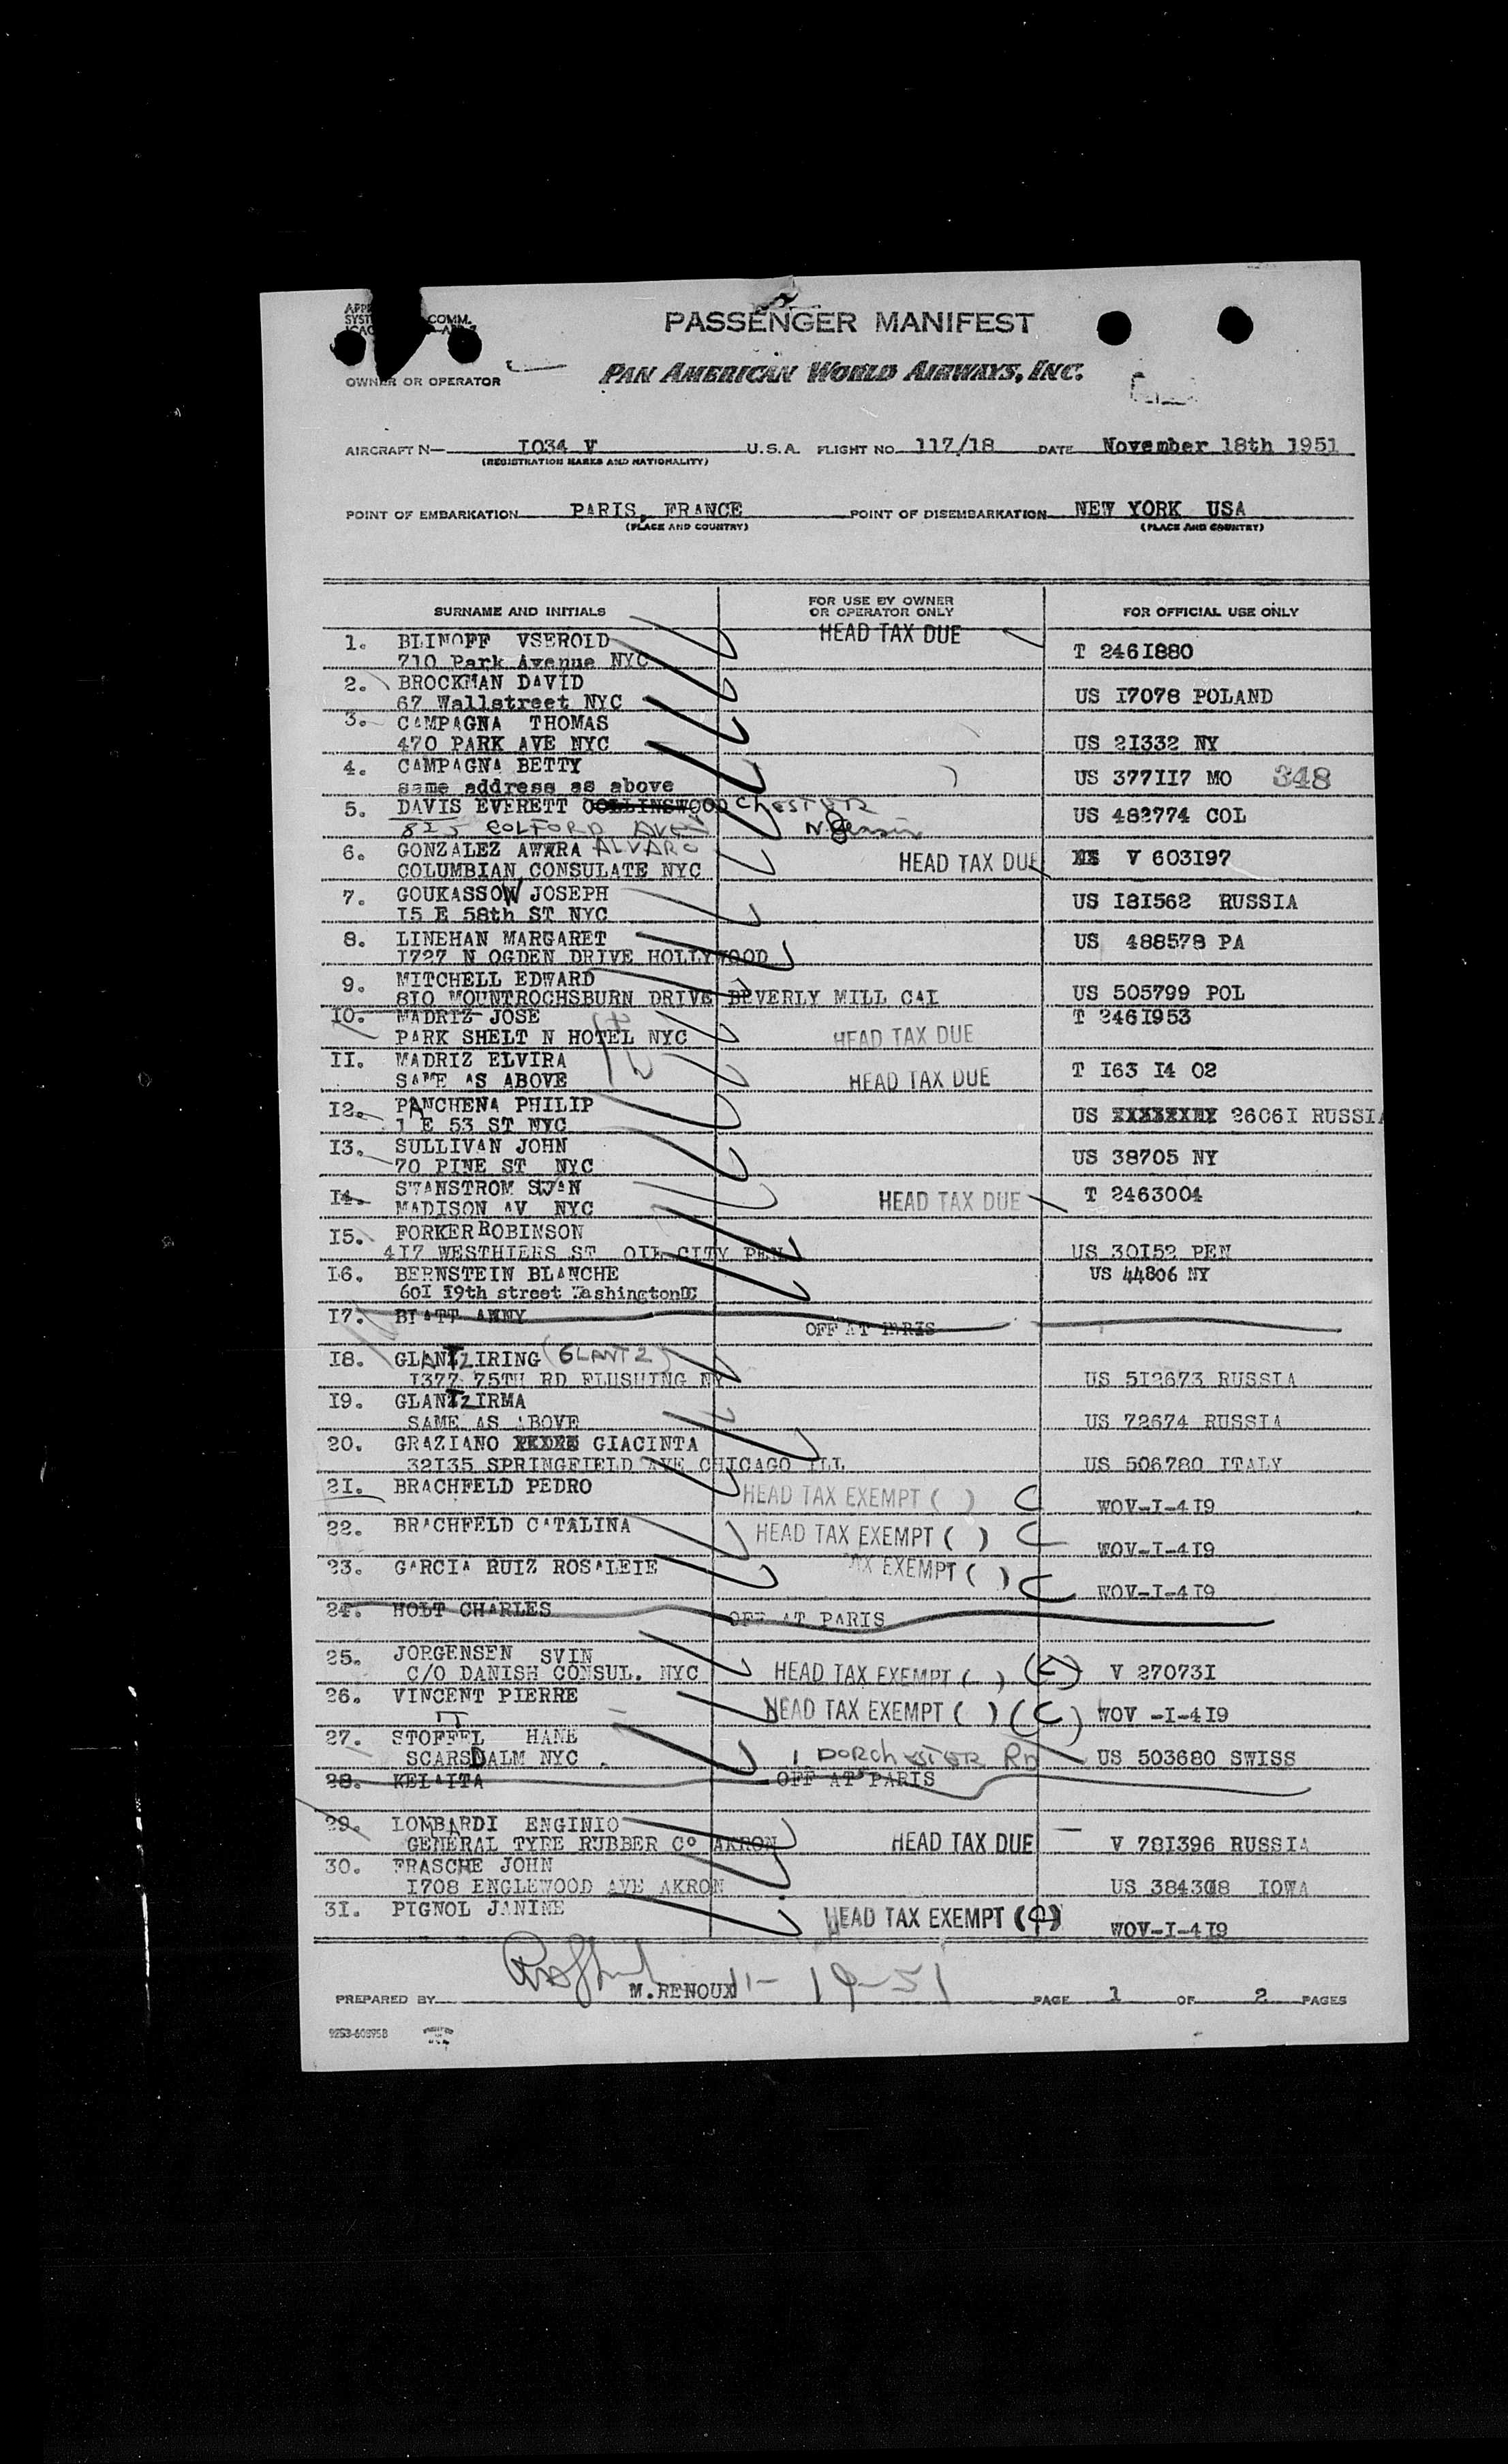 PASSENGER MANIFEST
PAN AMERICAN WORLD AIRWAYS, INC.
OWNER OR OPERATOR
AIRCRAFT N— I034 V U.S.A. FLIGHT NO. 117/18 DATE November 18th 1951
(REGISTRATION MARKS AND NATIONALITY)
POINT OF EMBARKATION PARIS, FRANCE POINT OF DISEMBARKATION NEW YORK USA
(PLACE AND COUNTRY) (PLACE AND COUNTRY)
SURNAME AND INITIALS FOR USE BY OWNER OR OPERATOR ONLY FOR OFFICIAL USE ONLY
1. BLINOFF VSEROID HEAD TAX DUE T 246I880
710 Park Avenue NYC
2. BROCKMAN DAVID US I7078 POLAND
67 Wallstreet NYC
3. CAMPAGNA THOMAS US 2I332 NY
470 PARK AVE NYC
4. CAMPAGNA BETTY US 377II7 MO 348
same address as above
5. DAVIS EVERETT COLLINSWOOD CHESTER US 482774 COL
825 COLFORD AVEN N. Jersin
6. GONZALEZ AWARA ALVARO HEAD TAX DUE V 603I97
COLUMBIAN CONSULATE NYC
7. GOUKASSOW JOSEPH US I8I562 RUSSIA
I5 E 58th ST NYC
8. LINEHAN MARGARET US 488578 PA
I727 N OGDEN DRIVE HOLLYWOOD
9. MITCHELL EDWARD US 505799 POL
8I0 MOUNTROCHSBURN DRIVE BEVERLY MILL CAI
I0. MADRIZ JOSE T 246I953
PARK SHELT N HOTEL NYC HEAD TAX DUE
II. MADRIZ ELVIRA T I63 I4 02
SAME AS ABOVE HEAD TAX DUE
I2. PANCHENA PHILIP US 2606I RUSSIA
1 E 53 ST NYC
I3. SULLIVAN JOHN US 38705 NY
70 PINE ST NYC
I4. SWANSTROM SWAN HEAD TAX DUE T 2463004
MADISON AV NYC
I5. FORKER ROBINSON
4I7 WESTHIERS ST OIL CITY PEN US 30I52 PEN
I6. BERNSTEIN BLANCHE US 44806 NY
60I I9th street WashingtonDC
I7. BIATT ANNY OFF AT PARIS
I8. GLANTZ IRING (GLANTZ)
I377 75TH RD FLUSHING NY US 5I2673 RUSSIA
I9. GLANTZ IRMA
SAME AS ABOVE US 72674 RUSSIA
20. GRAZIANO GIACINTA
32I35 SPRINGFIELD AVE CHICAGO ILL US 506780 ITALY
2I. BRACHFELD PEDRO HEAD TAX EXEMPT ( ) C WOV-I-4I9
22. BRACHFELD CATALINA HEAD TAX EXEMPT ( ) C WOV-I-4I9
23. GARCIA RUIZ ROSALEIE AX EXEMPT ( ) C WOV-I-4I9
24. HOLT CHARLES OFF AT PARIS
25. JORGENSEN SVIN
C/O DANISH CONSUL. NYC HEAD TAX EXEMPT ( ) (C) V 27073I
26. VINCENT PIERRE HEAD TAX EXEMPT ( ) (C) WOV -I-4I9
27. STOFFEL HANE
SCARSDALM NYC . 1 DORCHESTER RD US 503680 SWISS
28. KELAITA OFF AT PARIS
29. LOMBARDI ENGINIO
GENERAL TYRE RUBBER Co AKRON HEAD TAX DUE V 78I396 RUSSIA
30. FRASCHE JOHN
I708 ENGLEWOOD AVE AKRON US 384308 IOWA
3I. PIGNOL JANINE HEAD TAX EXEMPT WOV-I-4I9
PREPARED BY M.RENOUX 11-19-51 PAGE 1 OF 2 PAGES